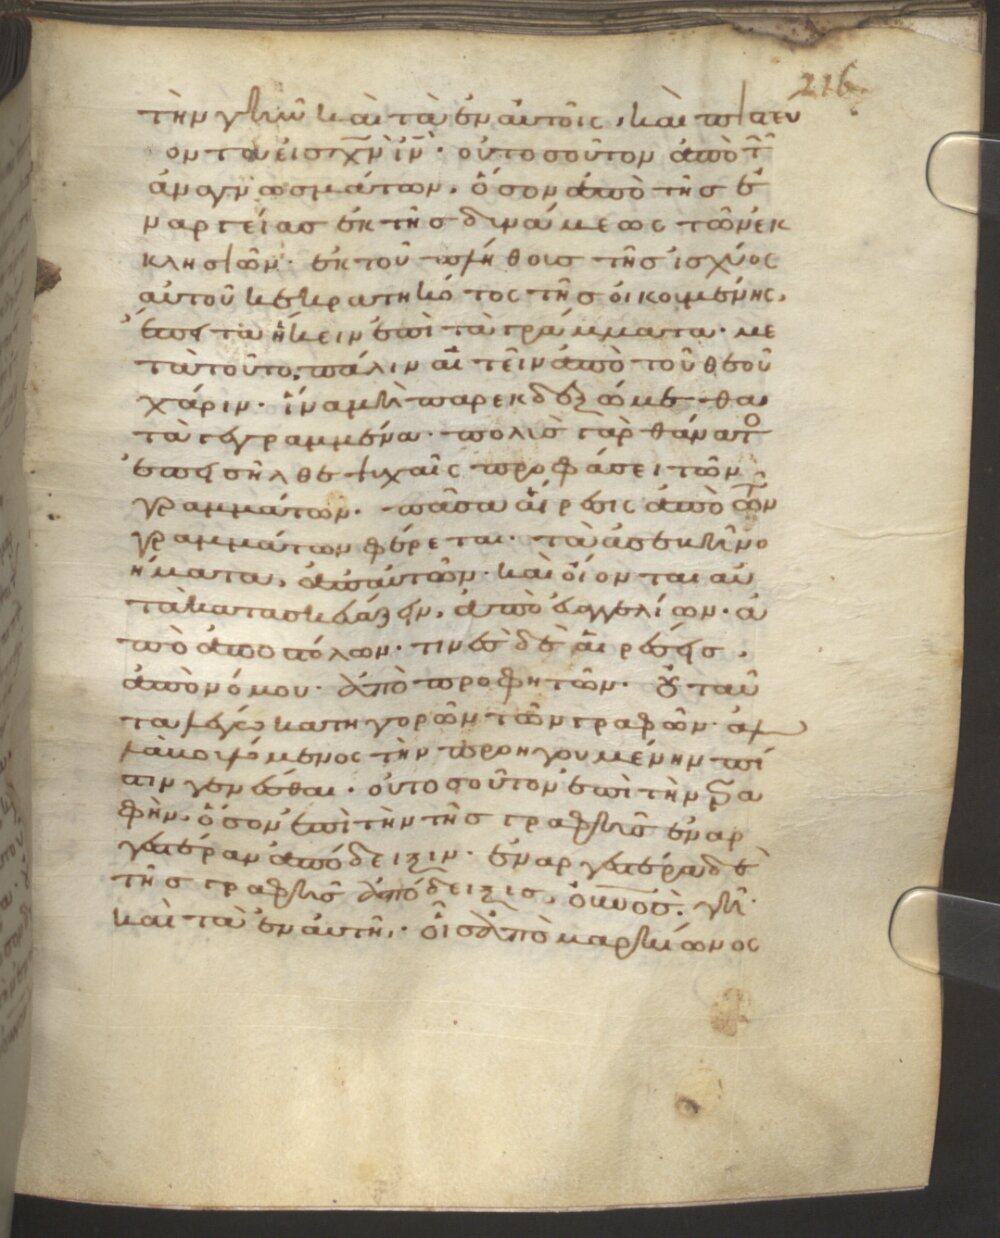 216
τὴν γῆν καὶ τὰ ἐν αὐτοῖς, καὶ πιστευ
ον τα εἰς χν ιν· οὐ τοσοῦτον ἀπὸ τ
ἀναγνωσμάτων, ὅσον ἀπὸ τῆς ἐ
ναργείας ἐκ τῆς δυνάμεως τῶν ἐκ
κλησιῶν· ἐκ τοῦ πλήθους τῆς ἰσχύος
αὐτοῦ κεκρατηκό τος τῆς οἰκουμένης,
ἔπειτα ἥκειν ἐπὶ τὰ γράμματα· με
τὰ τοῦτο, πάλιν αἰτεῖν ἀπὸ τοῦ θεοῦ
χάριν· ἵνα μὴ παρεκδεξώμε θα
τὰ γεγραμμένα· πολὺς γὰρ θάνατο
ἐπεισῆλθε ψυχαῖς προφάσει τῶν
γραμμάτων· πᾶσα αἵρεσις ἀπὸ τῶν
γραμμάτων φέρεται· τὰ ἀσεβῆ νο
ήματα, ἀπ αὐτῶν· καὶ οἴονται αὐ
τὰ κατασκευάζειν, ἀπὸ εὐαγγελίων· ἀ
πὸ ἀποστόλων· τινὲς δὲ αἱρέσεις,
ἀπὸ νόμου· ἀπὸ προφητῶν· οὐ ταῦ
τα λέγω κατηγορῶν τῶν γραφῶν· ἀλ
λὰ βουλόμενος τὴν προηγουμένην πί
στιν γενέσθαι· οὐ τοσοῦτον ἐπὶ τὴν γρα
φὴν, ὅσον ἐπὶ τὴν τῆς γραφῆς ἐναρ
γεστέραν ἀπόδειξιν· ἐναργεστέρα δὲ
τῆς γραφῆς ἀπόδειξις, ὁ οὐνος· γῆ·
καὶ τὰ ἐν αὐτῆ,· οἷς ἀπὸ μαρκίωνος